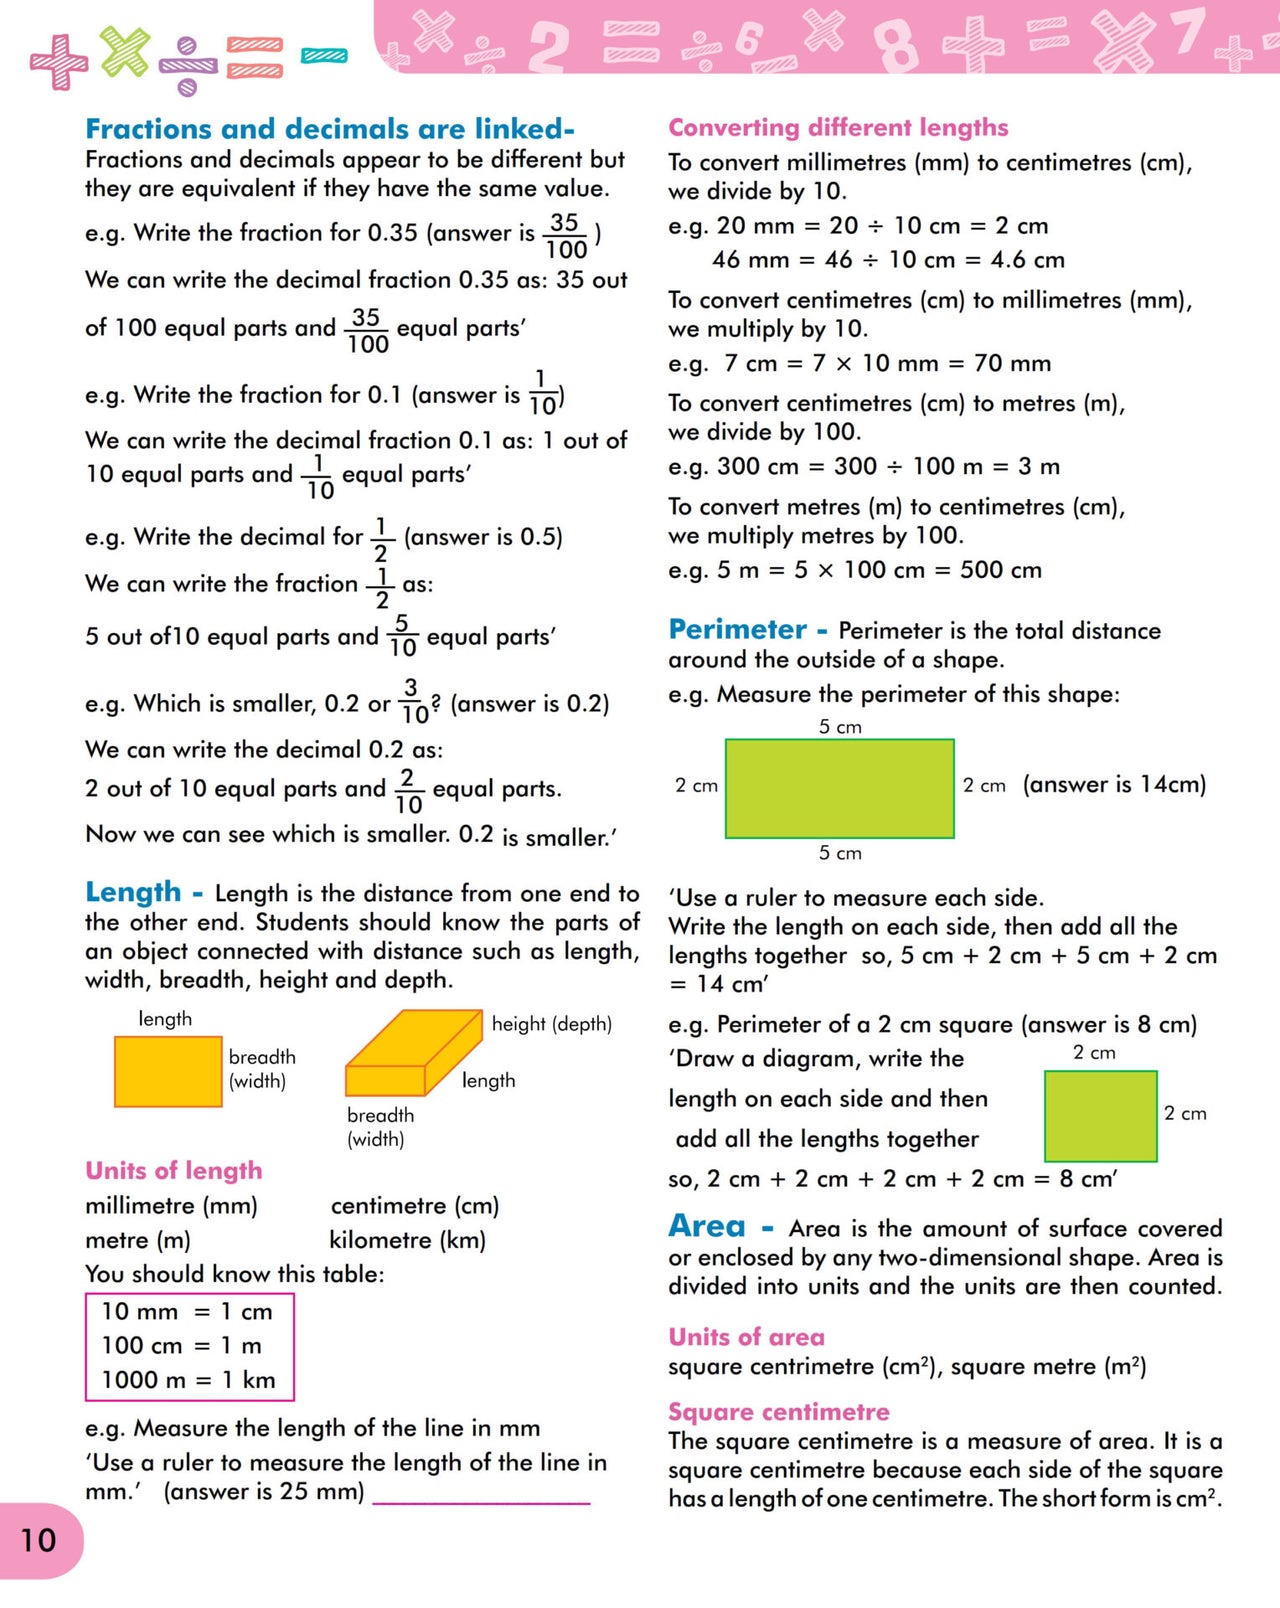 Fractions and decimals are linked-
Fractions and decimals appear to be different but
they are equivalent if they have the same value.
e.g. Write the fraction for 0.35 (answer is 35/100 )
We can write the decimal fraction 0.35 as: 35 out
of 100 equal parts and 35/100 equal parts’
e.g. Write the fraction for 0.1 (answer is 1/10)
We can write the decimal fraction 0.1 as: 1 out of
10 equal parts and 1/10 equal parts’
e.g. Write the decimal for 1/2 (answer is 0.5)
We can write the fraction 1/2 as:
5 out of10 equal parts and 5/10 equal parts’
e.g. Which is smaller, 0.2 or 3/10? (answer is 0.2)
We can write the decimal 0.2 as:
2 out of 10 equal parts and 2/10 equal parts.
Now we can see which is smaller. 0.2 is smaller.’
Length - Length is the distance from one end to
the other end. Students should know the parts of
an object connected with distance such as length,
width, breadth, height and depth.
length
breadth
(width)
height (depth)
length
breadth
(width)
Units of length
millimetre (mm) centimetre (cm)
metre (m) kilometre (km)
You should know this table:
10 mm = 1 cm
100 cm = 1 m
1000 m = 1 km
e.g. Measure the length of the line in mm
‘Use a ruler to measure the length of the line in
mm.’ (answer is 25 mm)
10
+ × ÷ = -
+ × ÷ 2 = ÷ 6 - × 8 + = × 7 + ÷
Converting different lengths
To convert millimetres (mm) to centimetres (cm),
we divide by 10.
e.g. 20 mm = 20 ÷ 10 cm = 2 cm
46 mm = 46 ÷ 10 cm = 4.6 cm
To convert centimetres (cm) to millimetres (mm),
we multiply by 10.
e.g. 7 cm = 7 × 10 mm = 70 mm
To convert centimetres (cm) to metres (m),
we divide by 100.
e.g. 300 cm = 300 ÷ 100 m = 3 m
To convert metres (m) to centimetres (cm),
we multiply metres by 100.
e.g. 5 m = 5 × 100 cm = 500 cm
Perimeter - Perimeter is the total distance
around the outside of a shape.
e.g. Measure the perimeter of this shape:
5 cm
2 cm
2 cm (answer is 14cm)
5 cm
‘Use a ruler to measure each side.
Write the length on each side, then add all the
lengths together so, 5 cm + 2 cm + 5 cm + 2 cm
= 14 cm’
e.g. Perimeter of a 2 cm square (answer is 8 cm)
‘Draw a diagram, write the
length on each side and then
add all the lengths together
2 cm
2 cm
so, 2 cm + 2 cm + 2 cm + 2 cm = 8 cm’
Area - Area is the amount of surface covered
or enclosed by any two-dimensional shape. Area is
divided into units and the units are then counted.
Units of area
square centrimetre (cm²), square metre (m²)
Square centimetre
The square centimetre is a measure of area. It is a
square centimetre because each side of the square
has a length of one centimetre. The short form is cm².